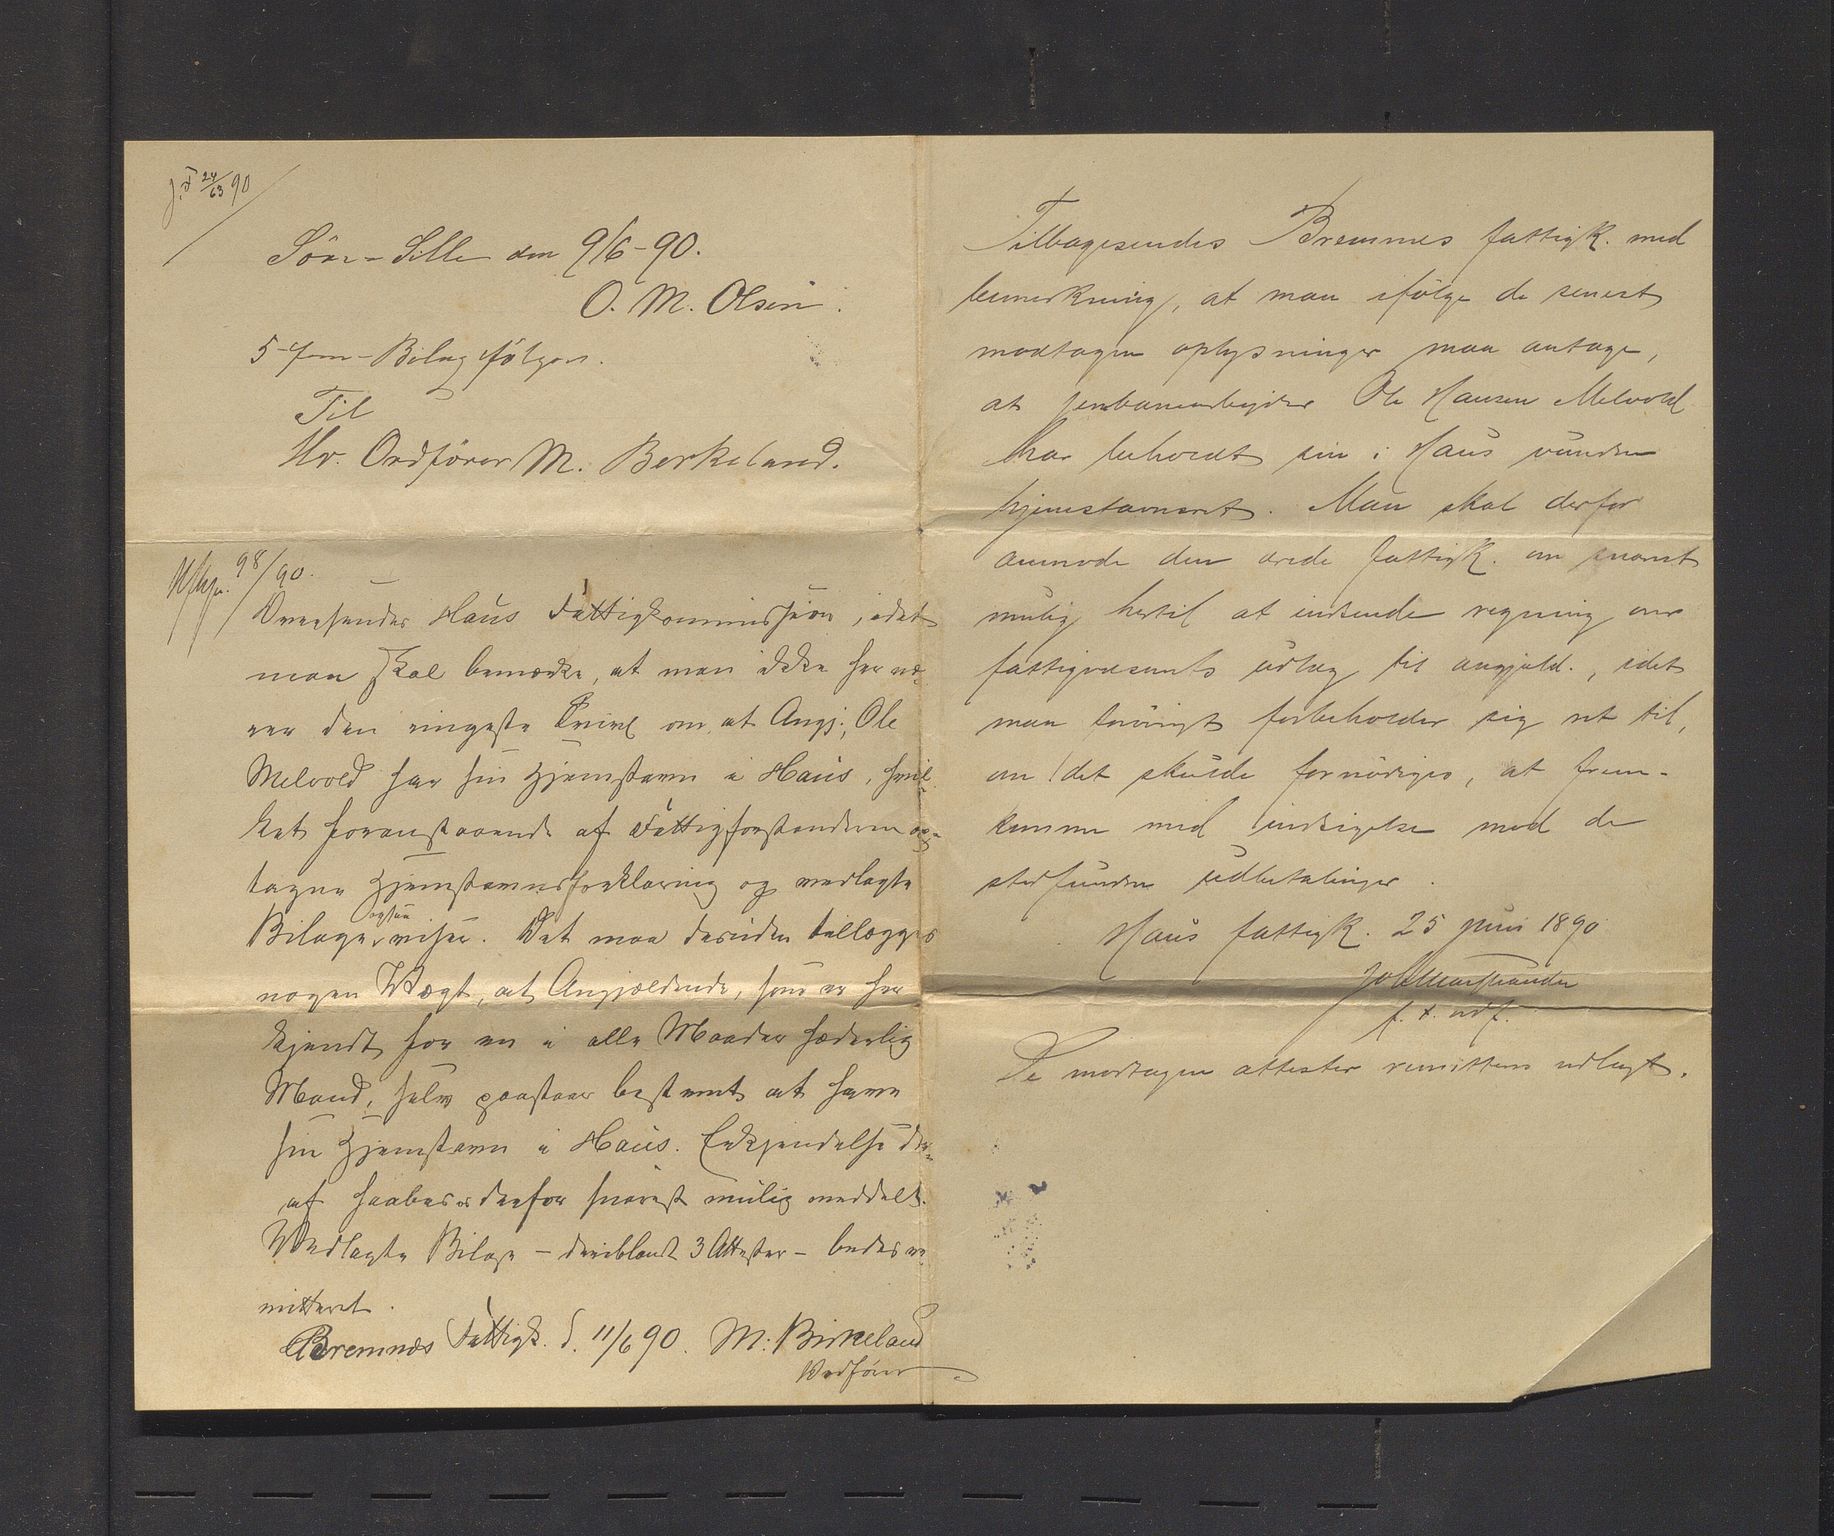 J. F 24/63 90
Söre-Lille den 9/6-90.
O. M. Olsen.
5-fem-Bilag følger.
Til
Hr. Ordfører M. Berkeland.
98/90.
Oversendes Haus Fattigkommission, idet
man skal bemærke, at man ikke her næ-
rer den ringeste Tvivl om, at Angj. Ole
Melvold har sin Hjemstavn i Haus, hvil-
ket foranstaaende af Fattigforstanderen op-
tagne Hjemstavnsforklaring og vedlagte
Bilage ogsaa viser. Det maa desuden tillægges
nogen Vægt, at Angjældende, som er her
kjendt for en i alle Maader hæderlig
Mand, selv paastaar bestemt at have
sin Hjemstavn i Haus. Erkjendelse der-
af haabes derfor snarest mulig meddelt.
Vedlagte Bilage - deriblandt 3 Attester - bedes re-
mitteret.
Bremnes Fattigk. d. 11/6 90. M. Birkeland
Ordfører
Tilbagesendes Bremnes fattigk. med
bemerkning, at man ifølge de senest
modtagne oplysninger maa antage,
at jernbanearbeider Ole Hansen Melvold
har beholdt sin i Haus vundne
hjemstavnsret. Man skal derfor
anmode den ærede fattigk. om snarest
mulig hertil at indsende regning over
fattigvæsenets udlæg til angjæld., idet
man forøvrigt forbeholder sig ret til,
om det skulde fornødiges, at frem-
komme med indsigelse mod de
stedfundne udbetalinger.
Haus fattigk. 25 juni 1890
f. t. ordf.
De modtagne attester remitteres vedlagt.